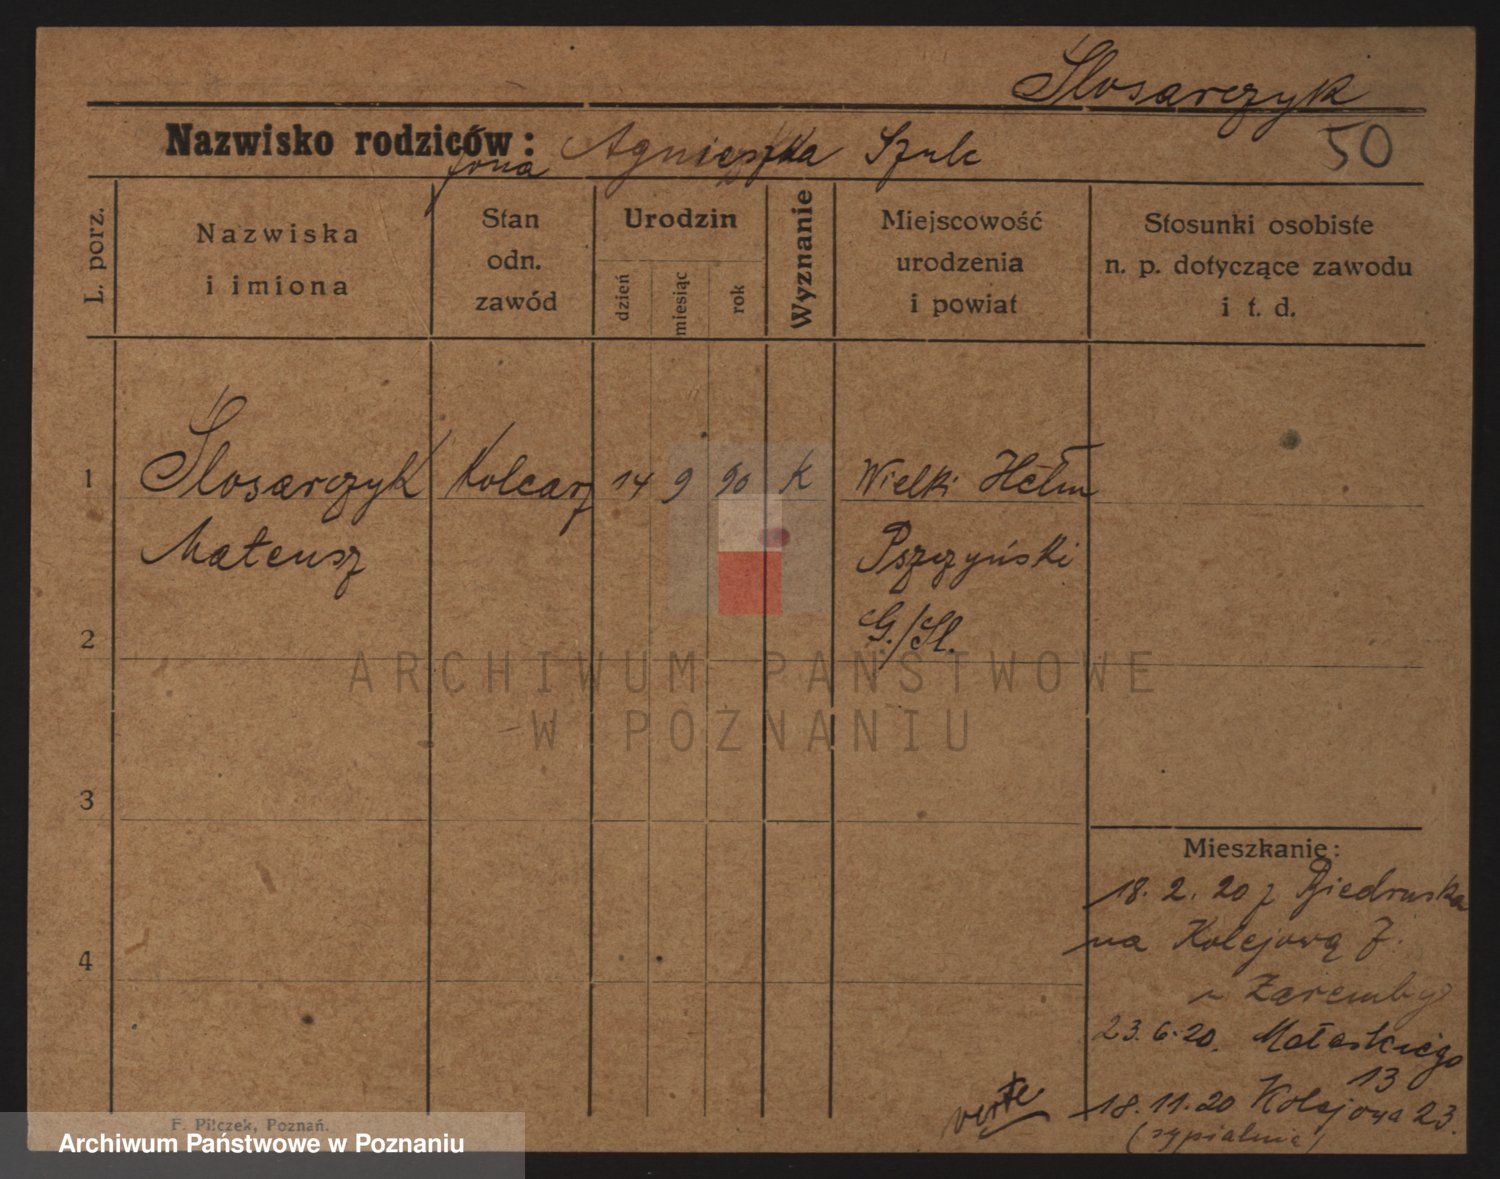 Slosarczyk
Nazwisko rodziców: Agnieszka Szulc
żona
50
L. porz.
Nazwiska
i imiona
Stan
odn.
zawód
Urodzin
dzień
miesiąc
rok
Wyznanie
Miejscowość
urodzenia
i powiat
Stosunki osobiste
n. p. dotyczące zawodu
i t. d.
1 Slosarczyk Kolearz 14 9 90 K Wielki Hełm
Mateusz Pszczyński
2 G./Sl.
ARCHIWUM PAŃSTWOWE
W POZNANIU
3
Mieszkanie:
18. 2. 20 z Biedruska
4 na Kolejową 7.
u Zaremby
23. 6. 20. 
13
verte 18. 11. 20 Kolejowa 23.
(sypialnia)
F. Pilczek, Poznań.
Archiwum Państwowe w Poznaniu